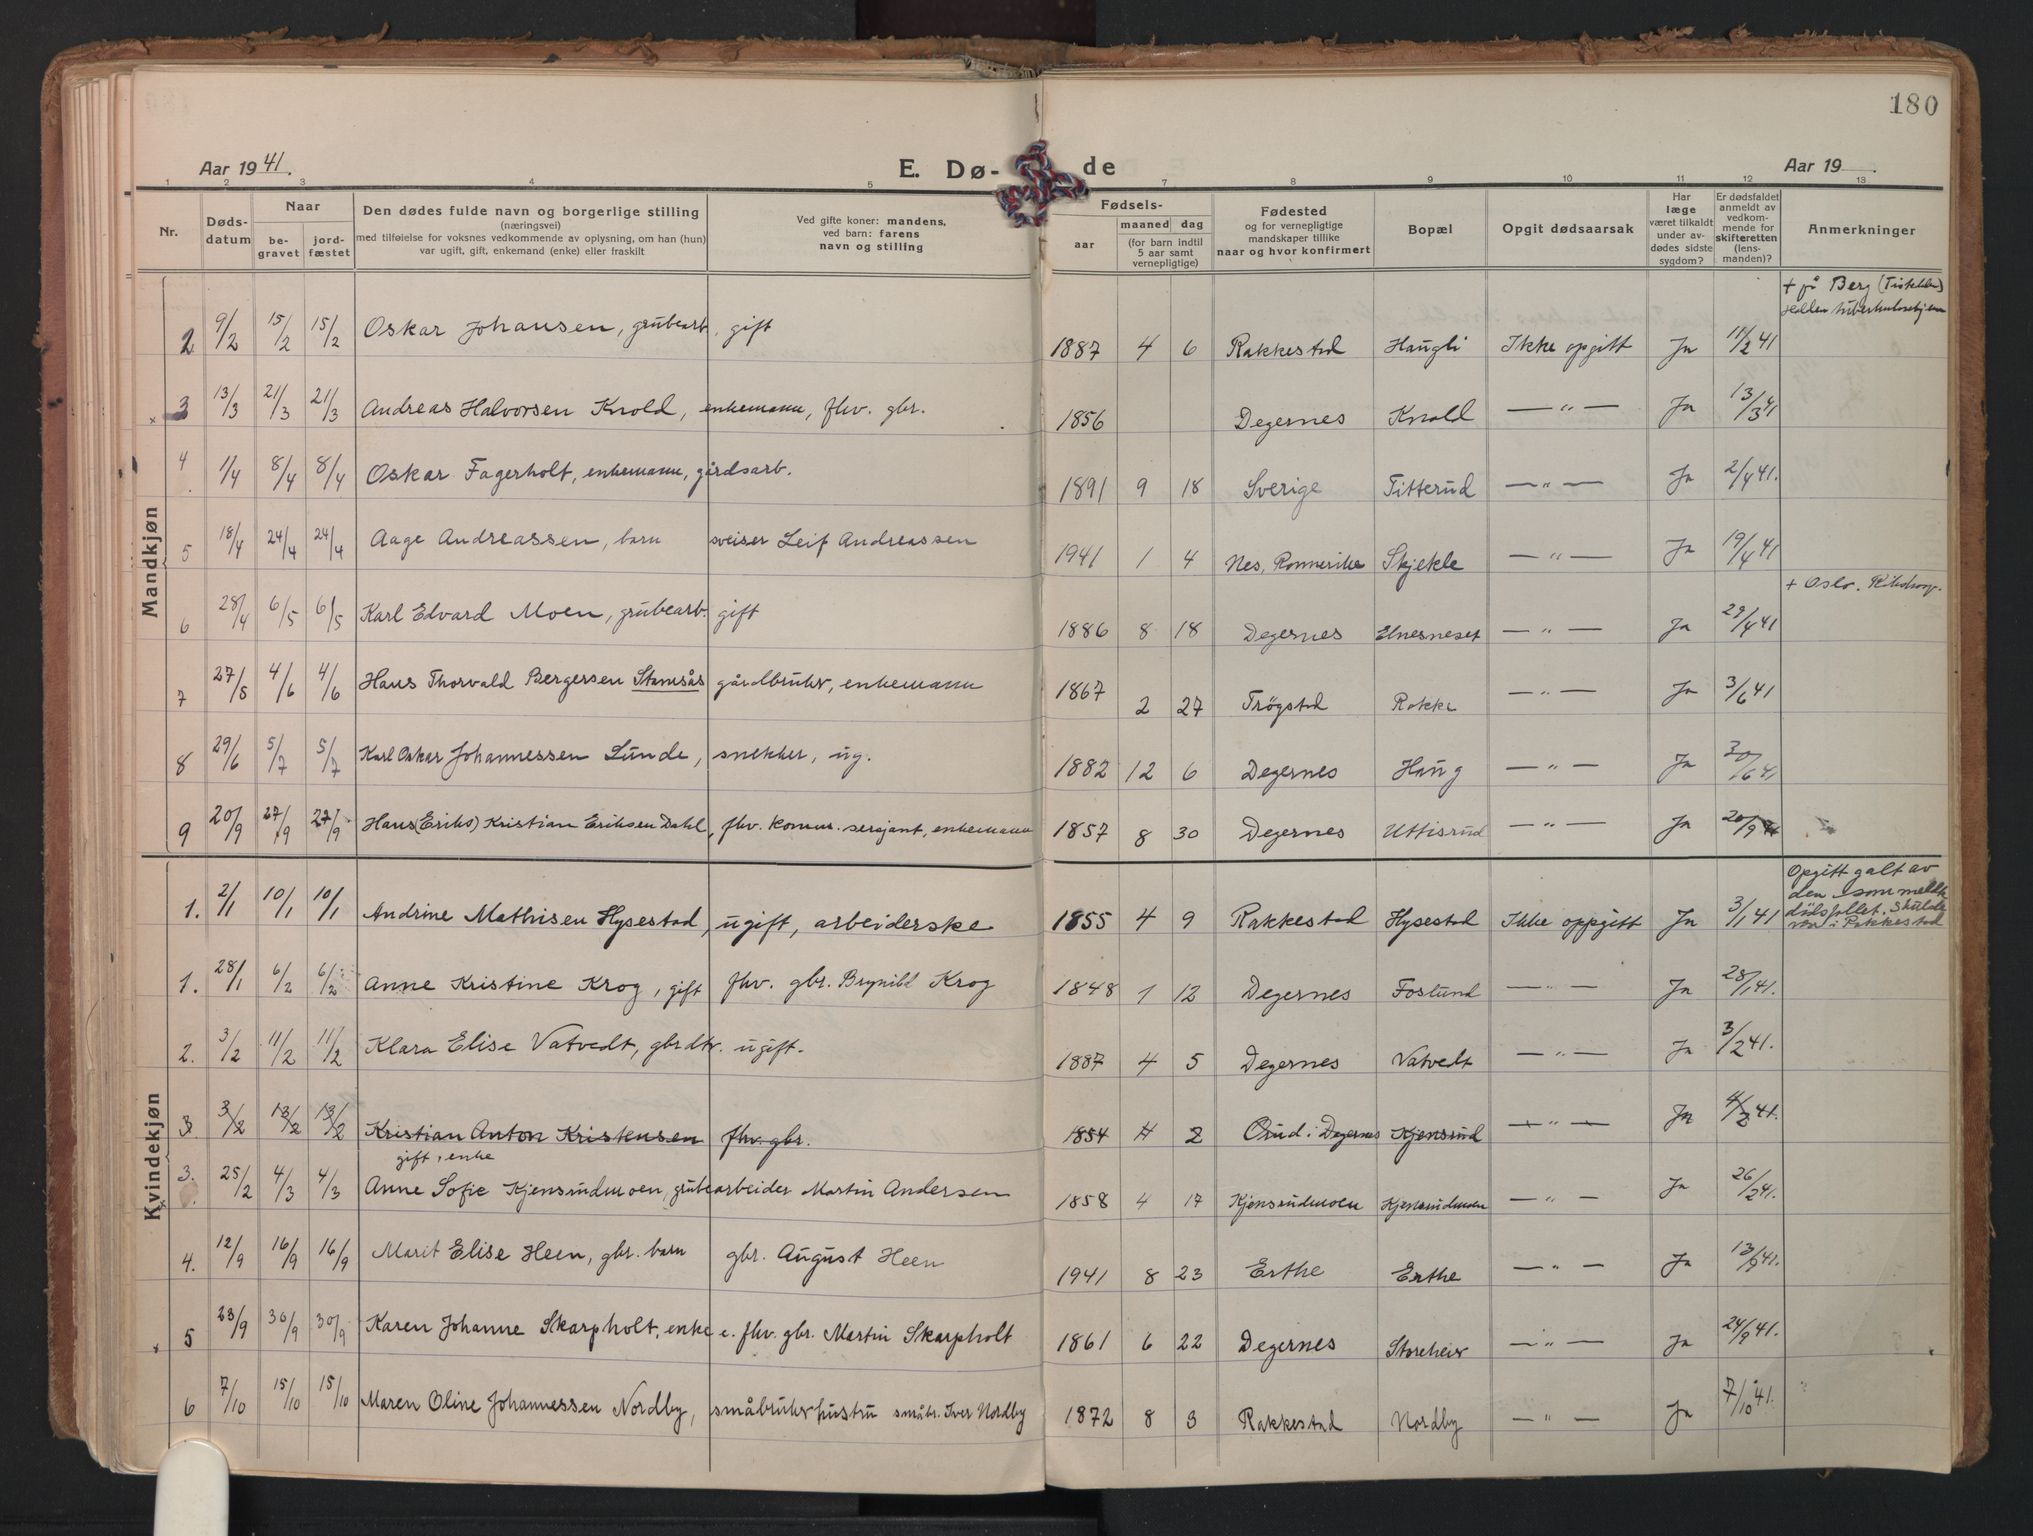 180
Aar 1941. E. Dø- de Aar 19 .
1 2 3 4 5 7 8 9 10 11 12 13
Nr. Døds-datum Naar be-gravet jord-fæstet Den dødes fulde navn og borgerlige stilling (næringsvei) med tilføielse for voksnes vedkommende av oplysning, om han (hun) var ugift, gift, enkemand (enke) eller fraskilt Ved gifte koner: mandens, ved barn: farens navn og stilling Fødsels- aar maaned dag (for barn indtil 5 aar samt vernepligtige) Fødested og for vernepligtige mandskaper tillike naar og hvor konfirmert Bopæl Opgit dødsaarsak Har læge været tilkaldt under av-dødes sidste sygdom? Er dødsfaldet anmeldt av vedkom-mende for skifteretten (lens-manden)? Anmerkninger
Mandkjøn
2 9/2 15/2 15/2 Oskar Johansen, grubearb. gift 1887 4 6 Rakkestad Haugli Ikke opgitt Ja 11/2 41 + på Berg Halden
3 13/3 21/3 21/3 Andreas Halvorsen Knold, enkemann, fhv. gbr. 1856 Degernes Knold — " — Ja 13/3 41
4 1/4 8/4 8/4 Oskar Fagerholt, enkemann, gårdsarb. 1891 9 18 Sverige Titterud — " — Ja 2/4 41.
5 18/4 24/4 24/4 Aage Andreassen, barn sveiser Leif Andreassen 1941 1 4 Nes, Romerike Skjekle — " — Ja 19/4 41
6 28/4 6/5 6/5 Karl Edvard Moen, grubearb. gift 1886 8 18 Degernes Elnesneset — " — Ja 29/4 41 + Oslo. Rikshosp.
7 27/5 4/6 4/6 Hans Thorvald Bergersen Stamsås gårdbruker, enkemann 1867 2 27 Trøgstad Rakke — " — Ja 3/6 41
8 29/6 5/7 5/7 Karl Oskar Johannessen Lunde, snekker, ug. 1882 12 6 Degernes Haug — " — Ja 30/6 41
9 20/9 27/9 27/9 Hans (Eriks) Kristian Eriksen Dahl, fhv. komm. sersjant, enkemann 1857 8 30 Degernes Uttisrud — " — Ja 20/9 41
Kvindekjøn
1. 2/1 10/1 10/1 Andrine Mathisen Hysestad, ugift, arbeiderske 1855 4 9 Rakkestad Hysestad Ikke oppgitt Ja 3/1 41 Opgitt galt av den som meldte dödsfallet. Skulde vær i Rakkestad
1. 28/1 6/2 6/2 Anne Kristine Krog, gift fhv. gbr. Brynild Krog 1848 1 12 Degernes Foslund — " — Ja 28/1 41.
2. 3/2 11/2 11/2 Klara Elise Vatvedt, gbrdtr. ugift. 1887 4 5 Degernes Vatvedt — " — Ja 3/2 41.
3. 3/2 13/2 13/2 Kristian Anton Kristensen fhv. gbr. 1854 4 2 Orud i Degernes Kjensrud — " — Ja 4/2 41.
gift, enke
3. 25/2 4/3 4/3 Anne Sofie Kjensrudmoen, grubearbeider Martin Andersen 1858 4 17 Kjensrudmoen Kjensrudmoen — " — Ja 26/2 41.
4. 12/9 16/9 16/9 Marit Elise Heen, gbr. barn gbr. August Heen 1941 8 23 Erthe Erthe — " — Ja 13/9 41.
5 23/9 30/9 30/9 Karen Johanne Skarpholt, enke e. fhv. gbr. Martin Skarpholt 1861 6 22 Degernes — " — Ja 24/9 41.
6 7/10 15/10 15/10 Maren Oline Johannessen Nordby, småbruker hustru småbr. Iver Nordby 1872 8 3 Rakkestad Nordby — " — Ja 7/10 41.